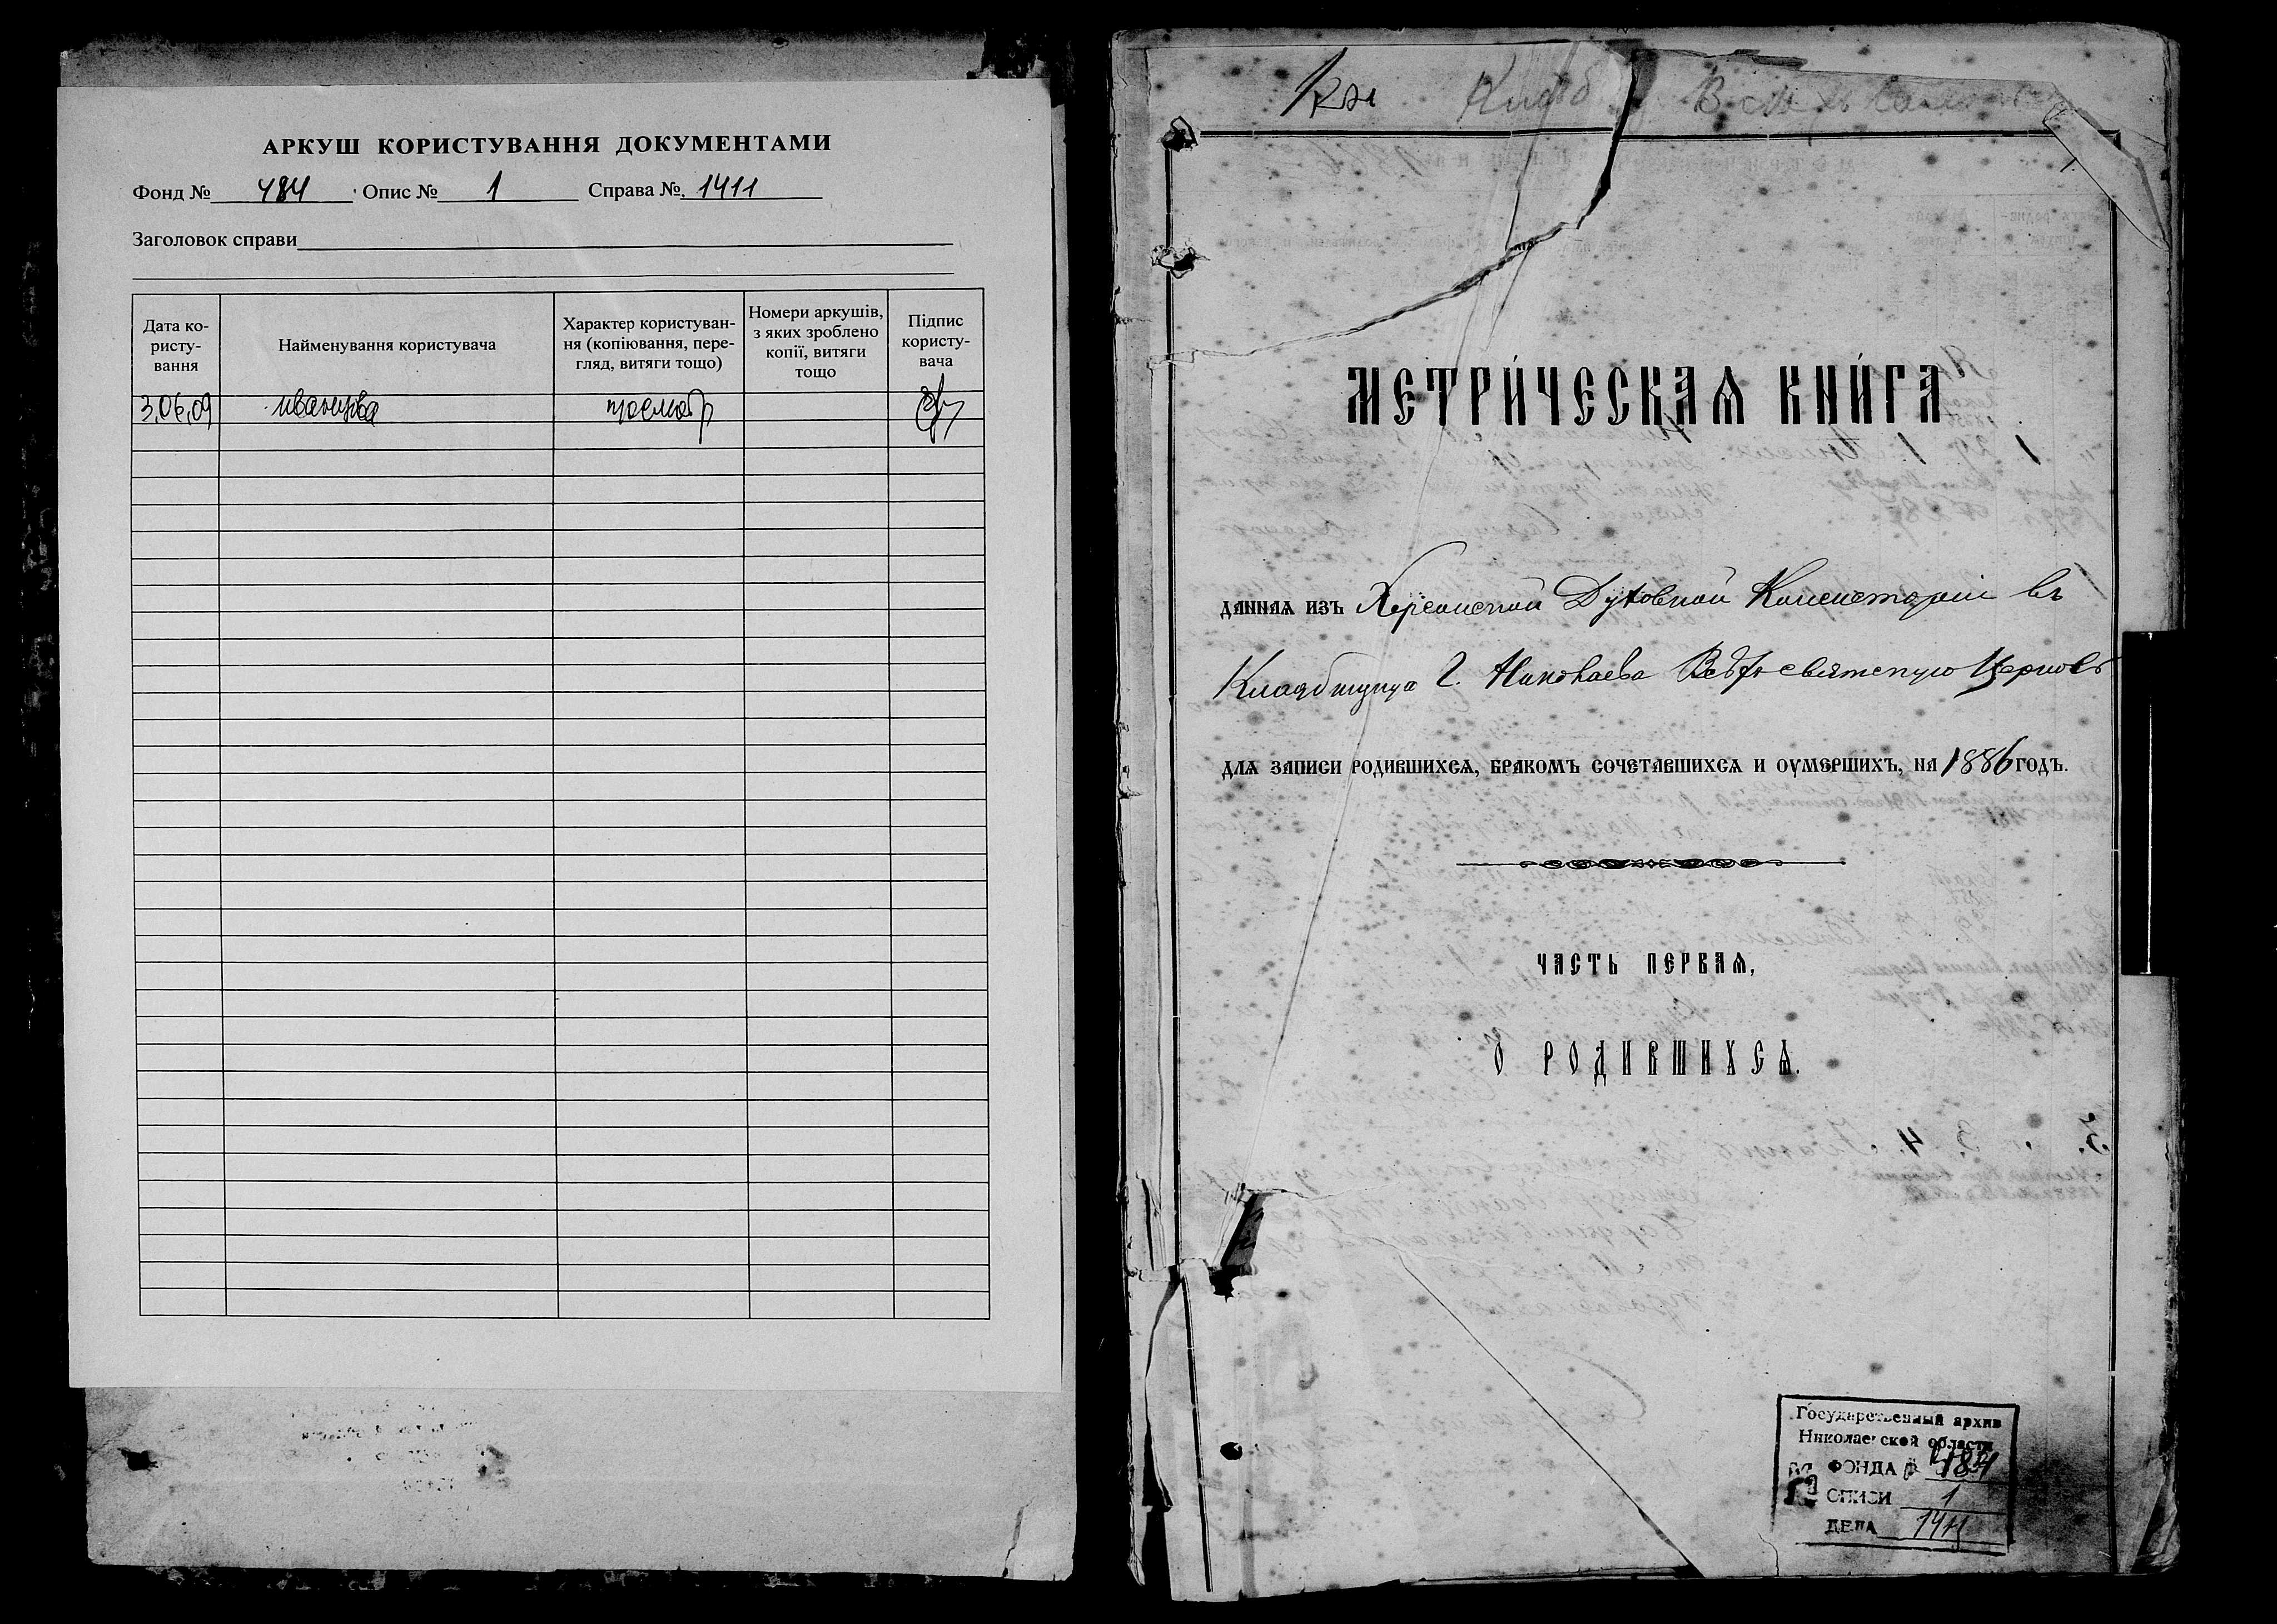 АРКУШ КОРИСТУВАННЯ ДОКУМЕНТАМИ
Фонд № 484 Опис № 1 Справа № 1411
Заголовок справи
Дата ко-
ристу-
вання
Найменування користувача
Характер користуван-
ня (копіювання, пере-
гляд, витяги тощо)
Номери аркушів,
з яких зроблено
копії, витяги
тощо
Підпис
користу-
вача
3,06,09
МЕТРИ́ЧЕСКАѦ КНИ́ГА
ДАННАѦ ИЗЪ Херсонской Духовной Консисторіи въ
г. Николаева Всѣхсвятскую Церковь
ДЛѦ ЗАПИСИ РОДИВШИХСѦ, БРАКОМЪ СОЧЕТАВШИХСѦ И ОУМЕРШИХЪ, НА 1886 ГОДЪ.
ЧАСТЬ ПЕРВАѦ,
О РОДИВШИХСѦ.
Государственный архив
Николаевской области
ФОНДА 484
ОПИСИ 1
ДЕЛА 1411